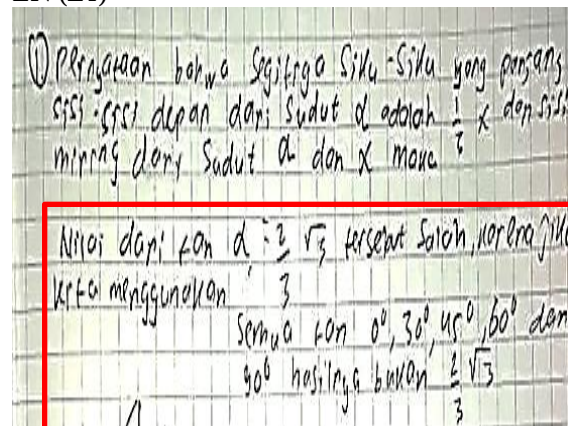 ① Pernyataan bahwa segitiga siku-siku yang panjang
sisi-sisi depan dari sudut α adalah 1/2 x dan sisi
miring dari sudut α dan x maka
Nilai dari tan α = 2/3 √3 tersebut salah, karena jika
kita menggunakan
semua tan 0°, 30°, 45°, 60° dan
90° hasilnya bukan 2/3 √3